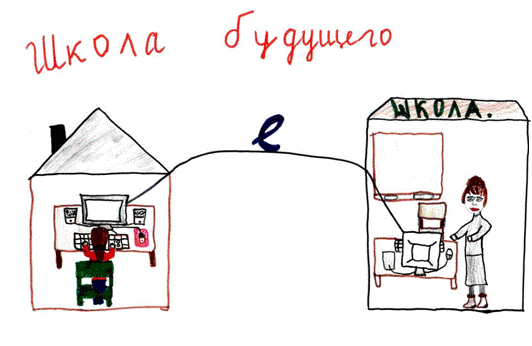 Школа будущего
ШКОЛА.
e